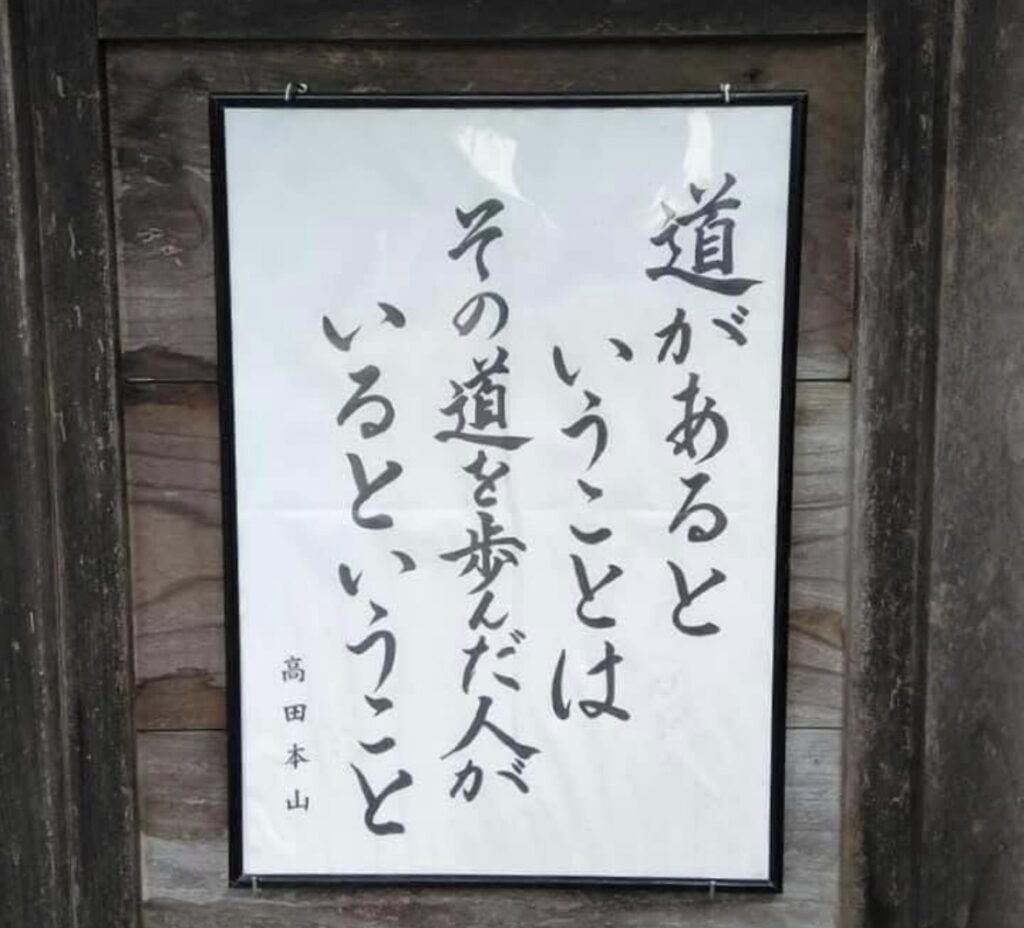 道があると
いうことは
その道を歩んだ人が
いるということ
高田本山